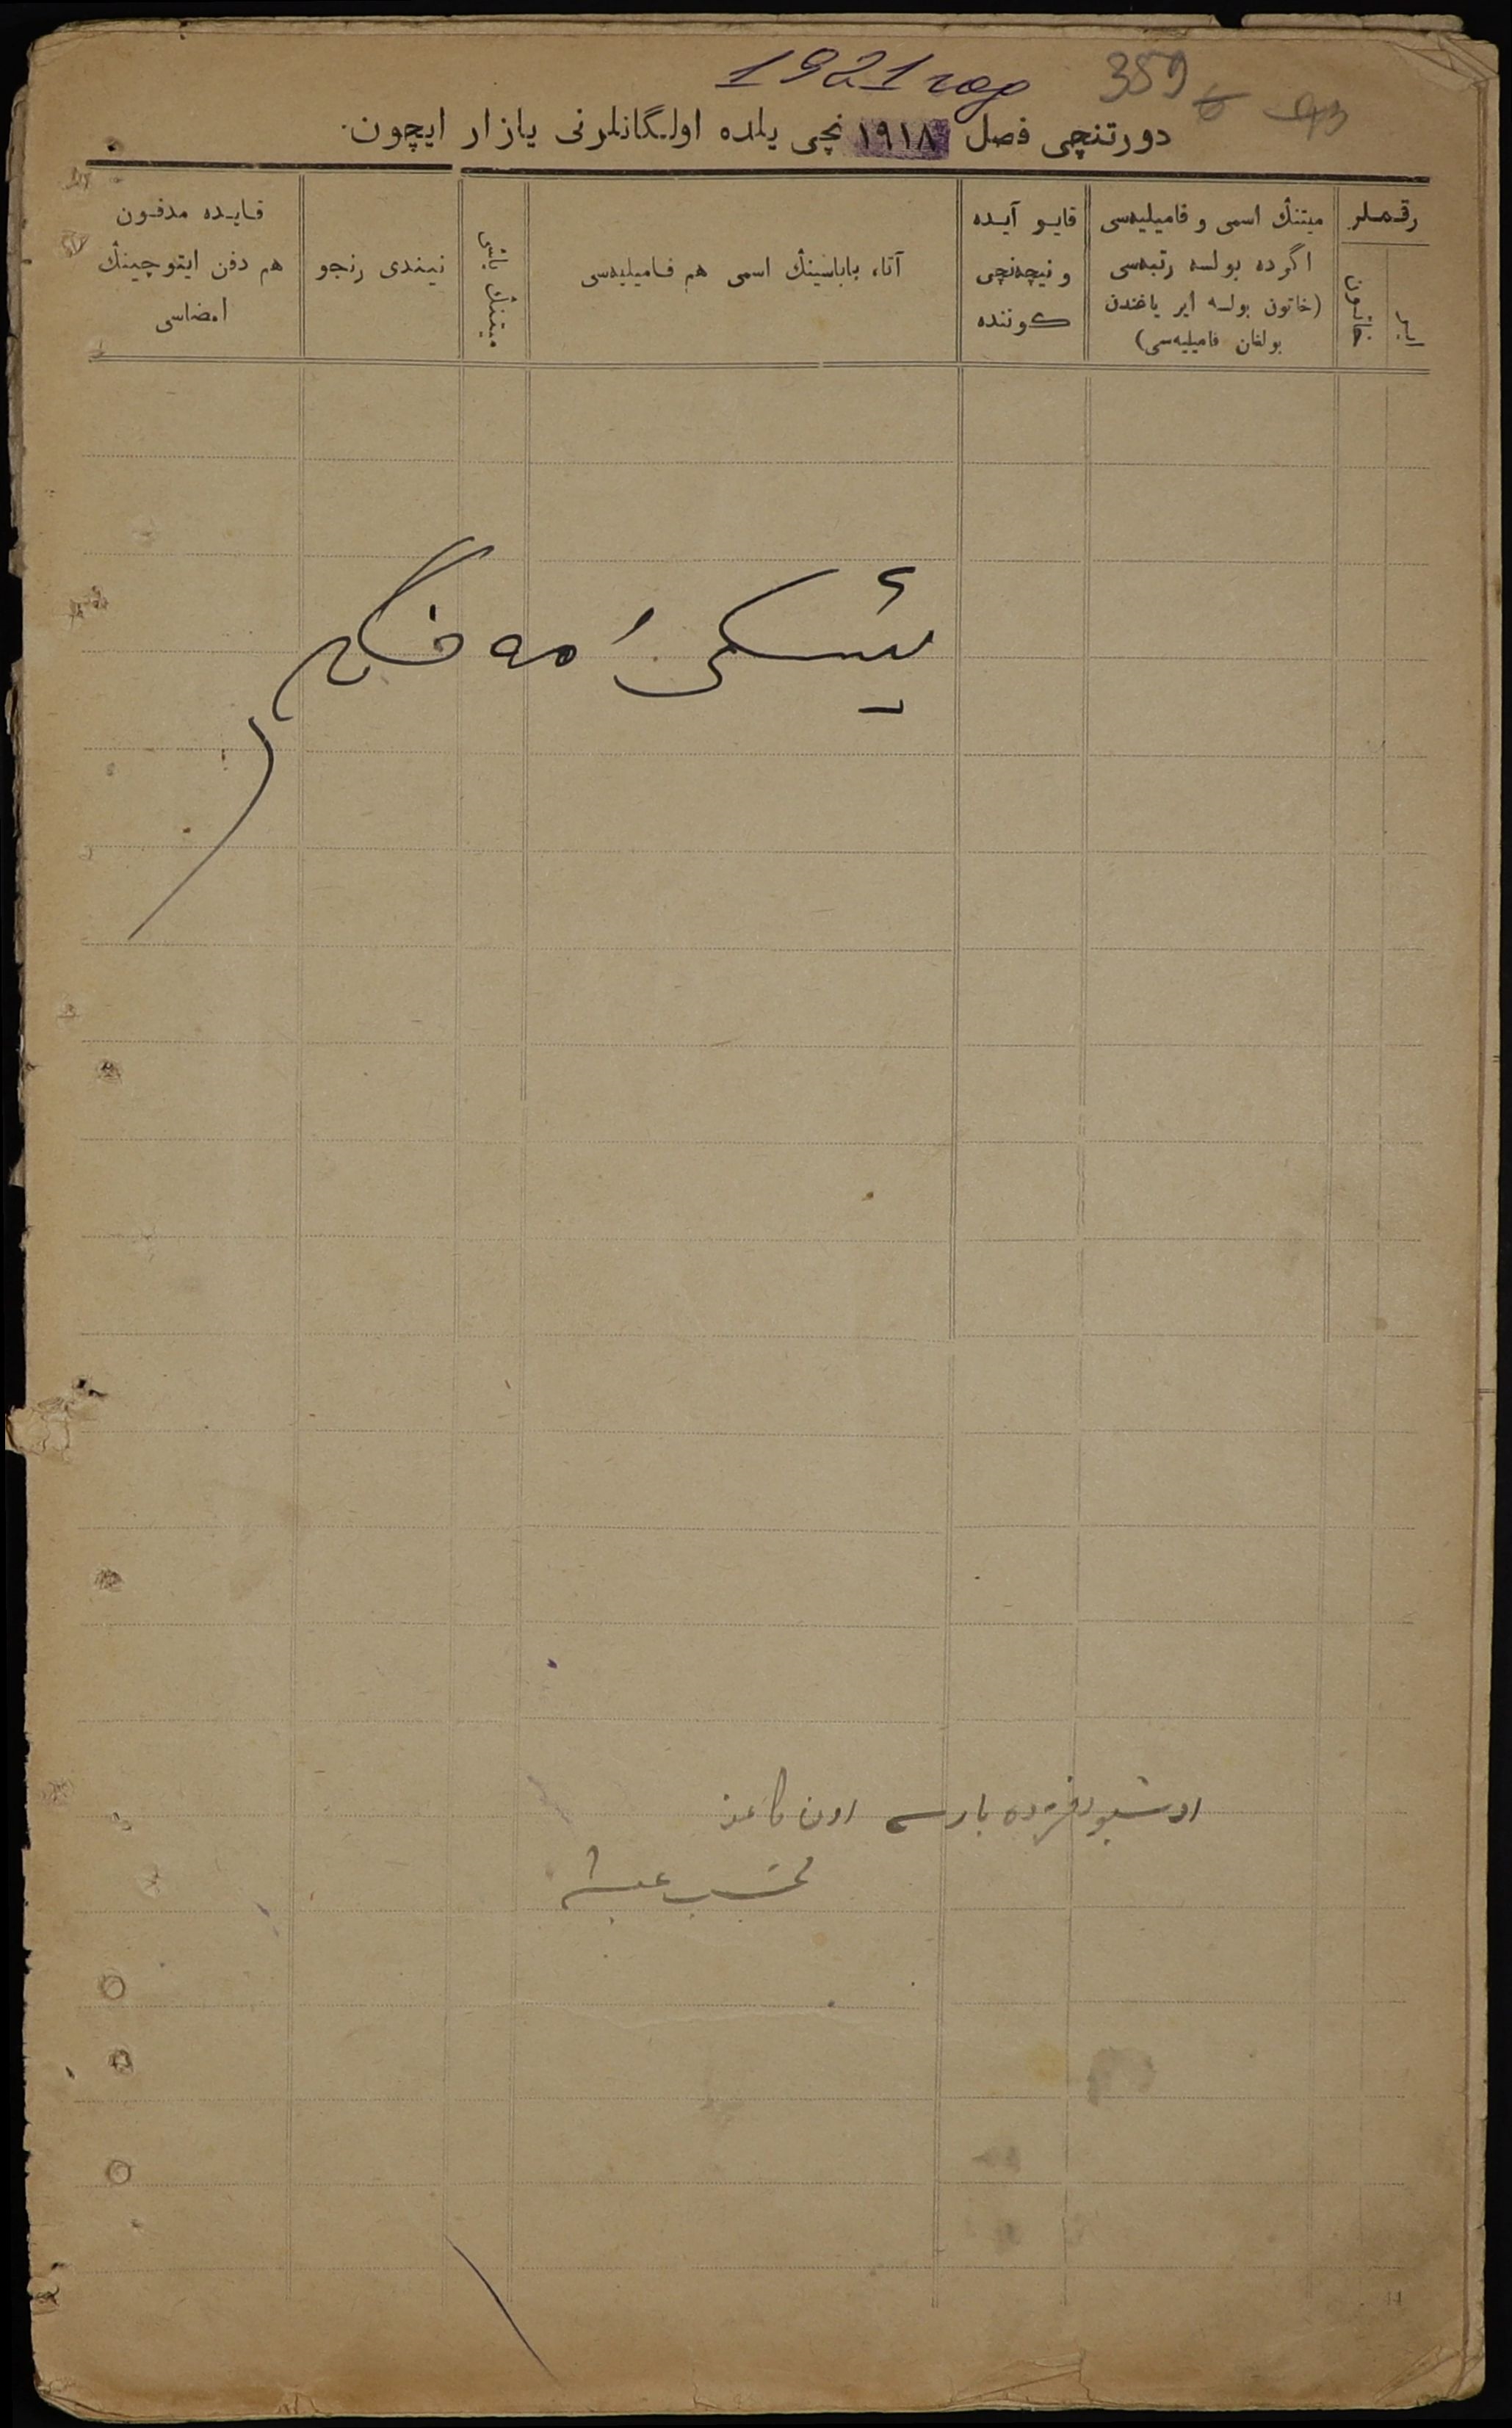 1921 год 359
دورتنچی فصل ۱۹۱۸ نچی یلده اولگانلرنی یازار ایچون.
رقملر
ایر
خاتون
میتنڭ اسمی و فامیلیه‌سی
اگرده بولسه رتبه‌سی
(خاتون بولسه ایر یاغندن
بولغان فامیلیه‌سی)
قایو آیده
و نیچه‌نچی
کوننده
آتا، باباسینڭ اسمی هم فامیلیه‌سی
میتنڭ یاشی
نیندی رنجو
قایده مدفون
هم دفن ایتوچینڭ
امضاسی
اوشبو دفترده بارسی اون کاغذ